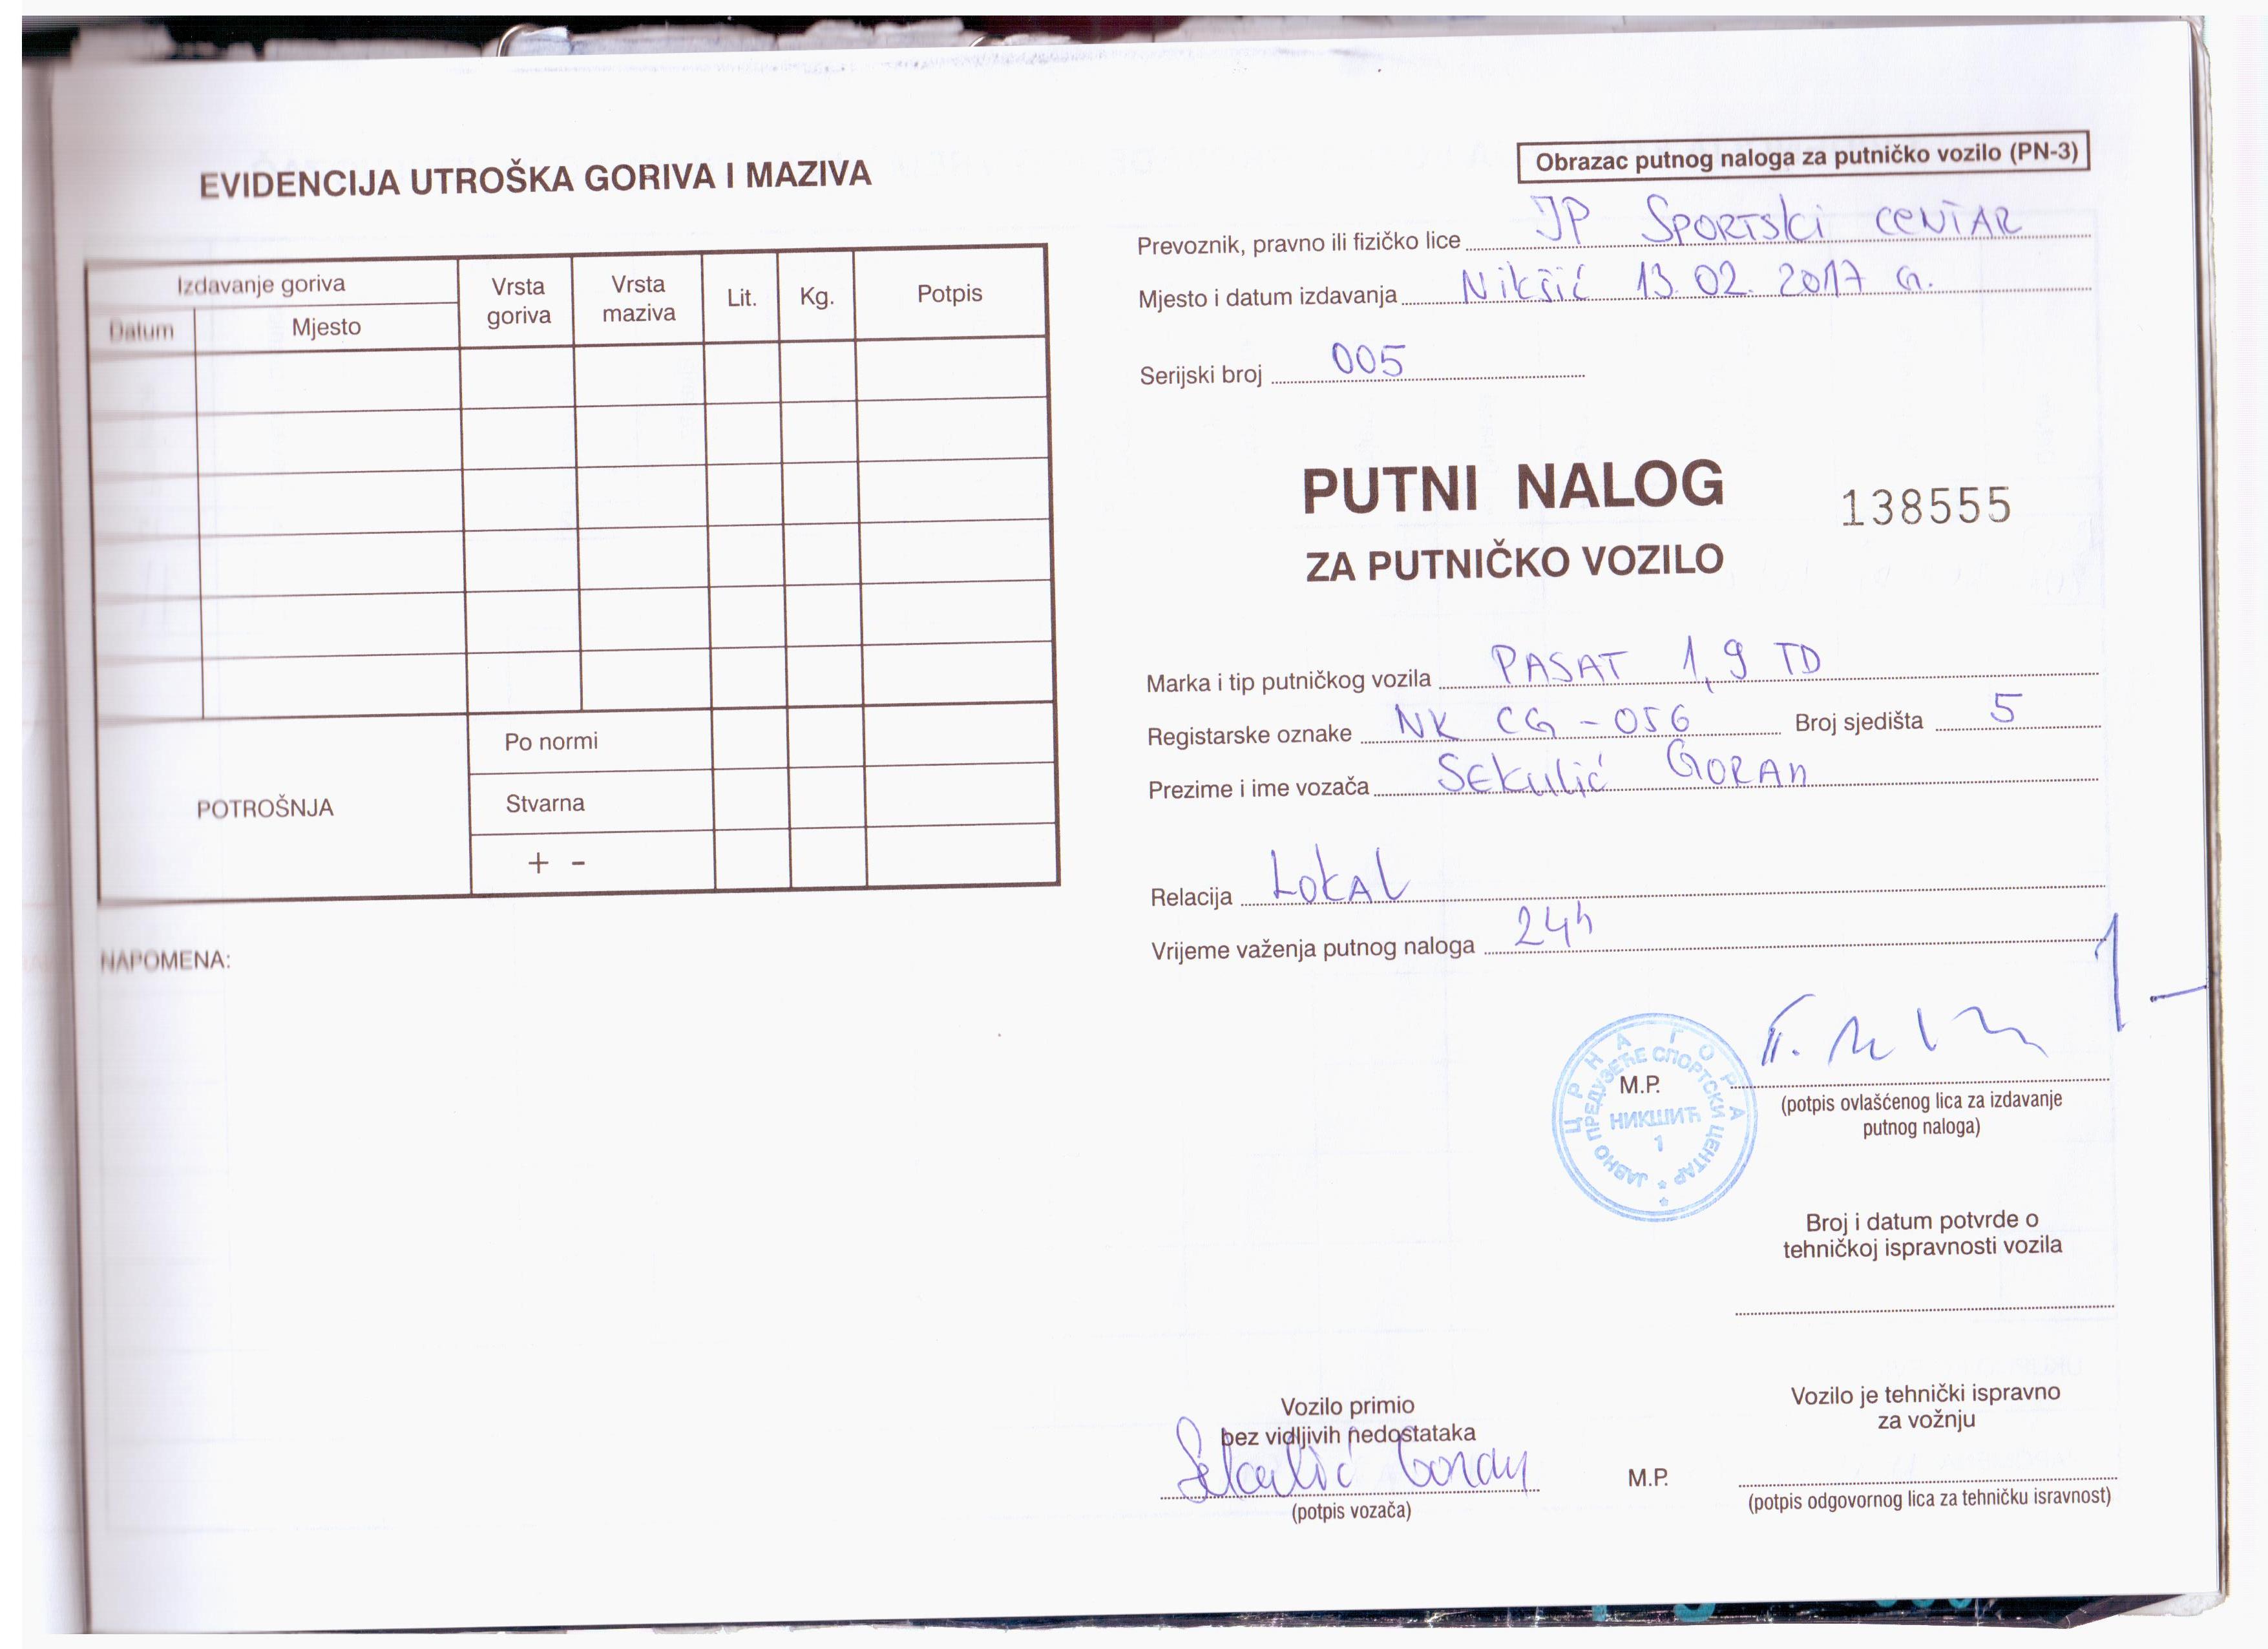 EVIDENCIJA UTROŠKA GORIVA I MAZIVA
Izdavanje goriva
Datum
Mjesto
Vrsta goriva
Vrsta maziva
Lit.
Kg.
Potpis
POTROŠNJA
Po normi
Stvarna
+ -
NAPOMENA:
Obrazac putnog naloga za putničko vozilo (PN-3)
Prevoznik, pravno ili fizičko lice JP Sportski centar
Mjesto i datum izdavanja Nikšić 13.02.2017 G.
Serijski broj 005
PUTNI NALOG
138555
ZA PUTNIČKO VOZILO
Marka i tip putničkog vozila PASAT 1,9 TD
Registarske oznake NK CG-056 Broj sjedišta 5
Prezime i ime vozača Sekulić Goran
Relacija Lokal
Vrijeme važenja putnog naloga 24h
M.P.
ЦРНА ГОРА
ЈАВНО ПРЕДУЗЕЋЕ СПОРТСКИ ЦЕНТАР
НИКШИЋ
1
(potpis ovlašćenog lica za izdavanje
putnog naloga)
Broj i datum potvrde o
tehničkoj ispravnosti vozila
Vozilo primio
bez vidljivih nedostataka
Sekulić Goran
(potpis vozača)
Vozilo je tehnički ispravno
za vožnju
M.P.
(potpis odgovornog lica za tehničku isravnost)